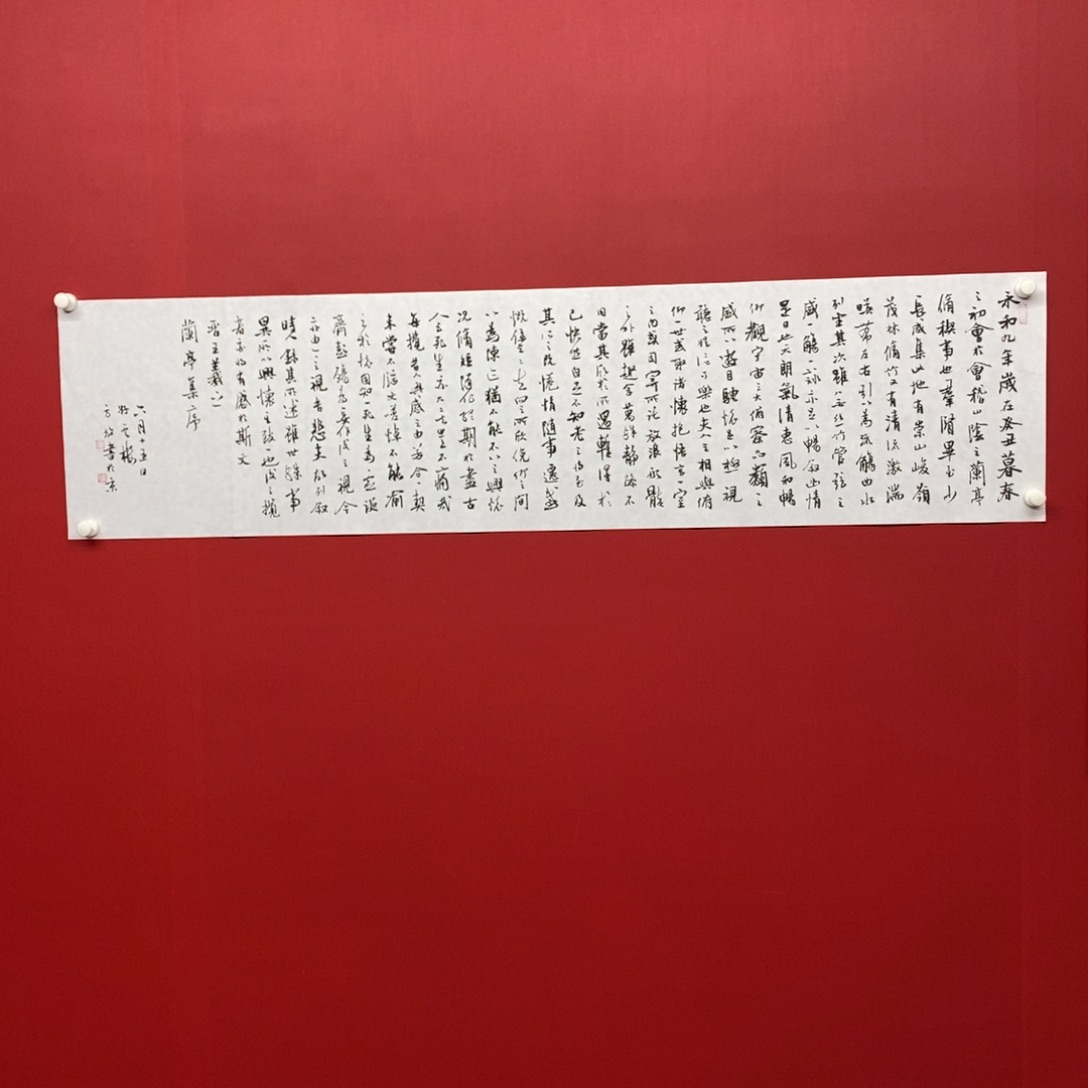 永和九年歲在癸丑暮春
之初會於會稽山陰之蘭亭
脩禊事也羣賢畢至少
長咸集此地有崇山峻嶺
茂林脩竹又有清流激湍
暎帶左右引以為流觴曲水
列坐其次雖無絲竹管弦之
盛一觴一詠亦足以暢敘幽情
是日也天朗氣清惠風和暢
仰觀宇宙之大俯察品類之
盛所以遊目騁懷足以極視
聽之娛信可樂也夫人之相與俯
仰一世或取諸懷抱悟言一室
之內或因寄所託放浪形骸
之外雖趣舍萬殊靜躁不
同當其欣於所遇輒得於
己快然自足不知老之將至及
其所之既惓情隨事遷感
慨係之矣向之所欣俛仰之間
以為陳迹猶不能不以之興懷
況脩短隨化終期於盡古
人云死生亦大矣豈不痛哉
每攬昔人興感之由若合一契
未嘗不臨文嗟悼不能喻
之於懷固知一死生為虛誕
齊彭殤為妄作後之視今
亦由今之視昔悲夫故列敘
時人錄其所述雖世殊事
異所以興懷其致一也後之攬
者亦將有感於斯文
晉王羲之
蘭亭集序
六月十五日
於京